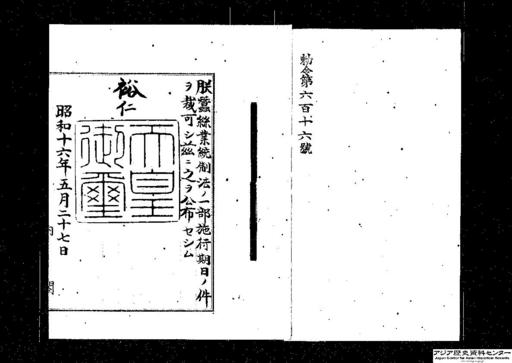 勅令第六百十六號
朕蠶絲業統制法ノ一部施行期日ノ件
ヲ裁可シ茲ニ之ヲ公布セシム
裕仁
天皇
御璽
昭和十六年五月二十七日
内閣
アジア歴史資料センター
Japan Center for Asian Historical Records